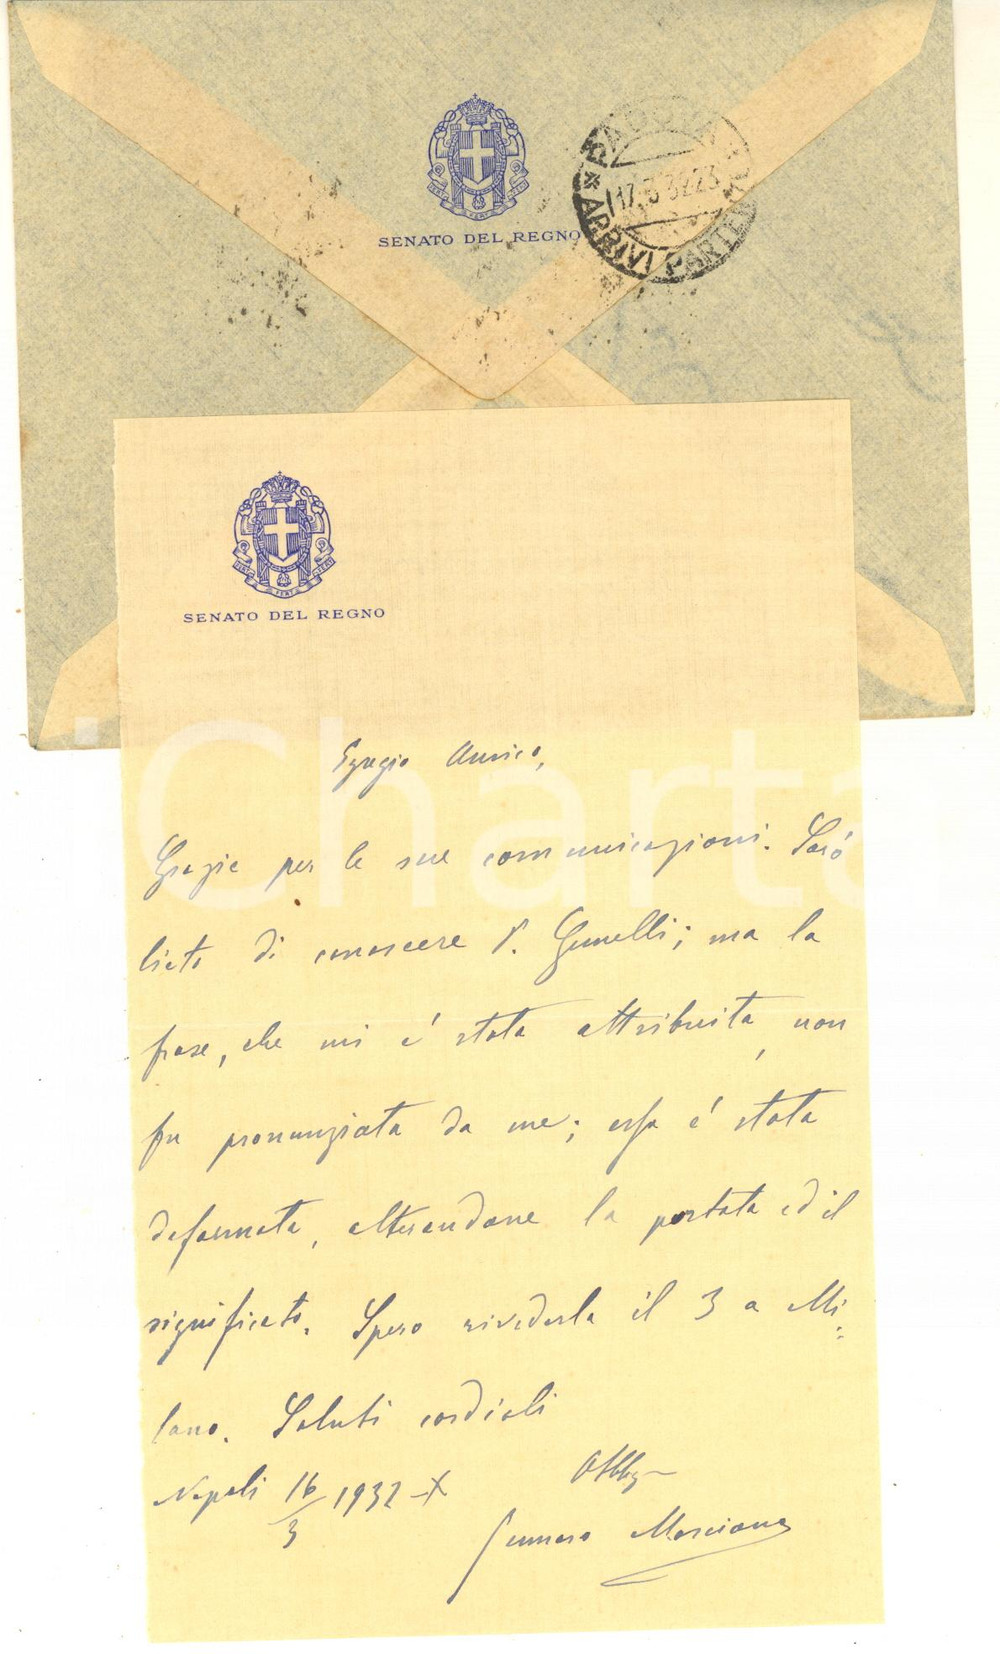 SENATO DEL REGNO
PADOVA
17.3.32.23
* ARRIVI PARTENZE
SENATO DEL REGNO
FERT FERT FERT
Egregio Amico,
Grazie per le sue comunicazioni. Sarò
lieto di conoscere P. Gemelli; ma la
frase, che mi è stata attribuita, non
fu pronunziata da me; essa è stata
deformata, alterandone la portata ed il
significato. Spero rivederla il 3 a Mi=
lano. Saluti cordiali
Napoli 16/3 1932 X
Obbl
Gennaro Marciano
iCharta